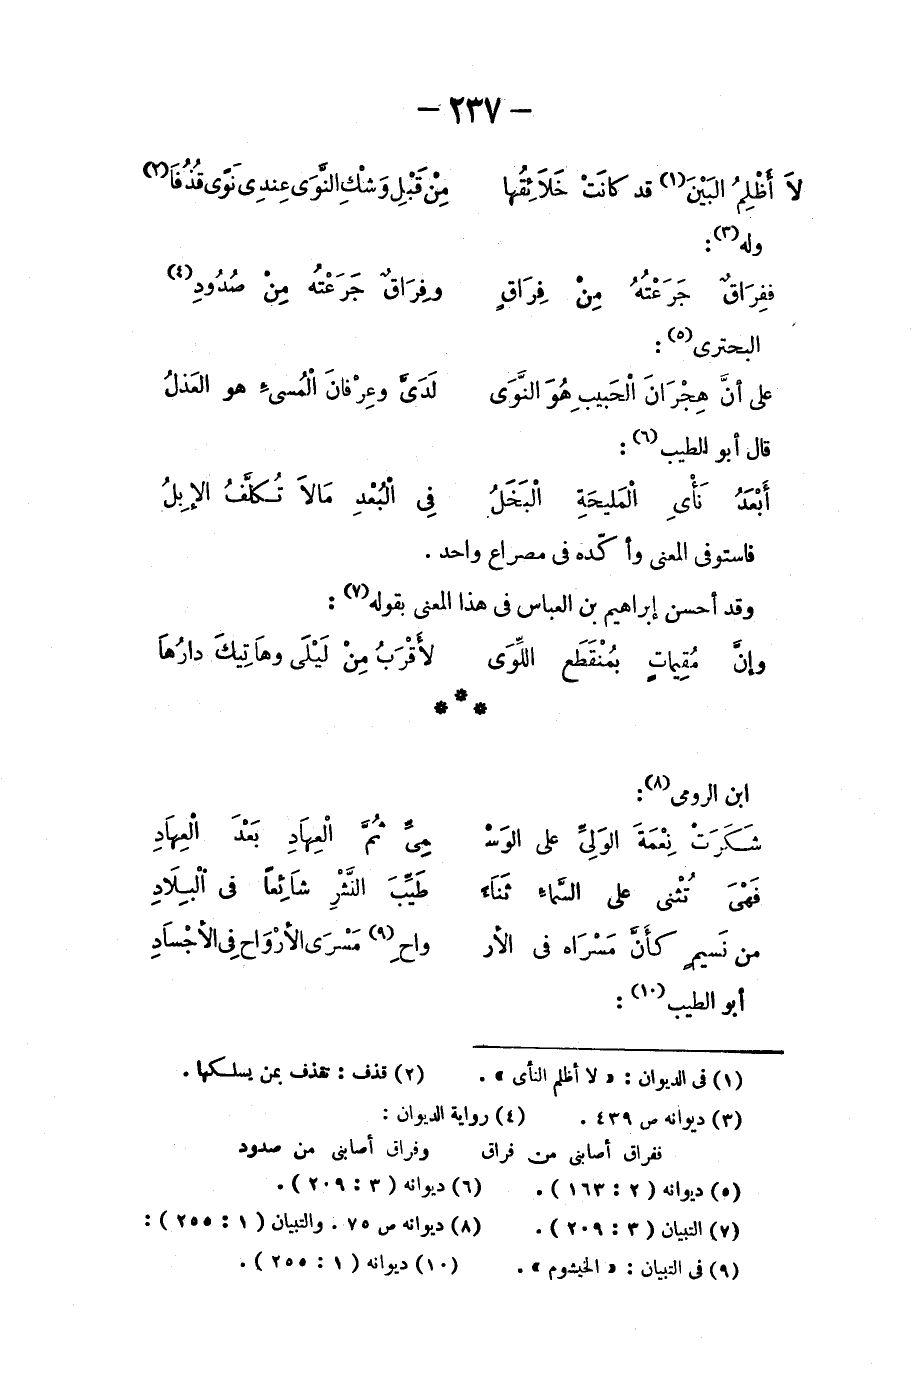 – ٢٣٧ –
لاَ أَظْلِمُ البَيْنَ (١) قد كانَتْ خَلاَئِقُها مِنْ قَبْلِ وَشْكِ النَّوَى عِندِى نَوًى قُذُفَا (٢)
وله (٣) :
ففِرَاقٌ جَرَعْتُهُ مِنْ فِرَاقٍ وفِرَاقٌ جَرَعْتُهُ مِنْ صُدُودِ (٤)
البحترى (٥) :
على أنَّ هِجْرَانَ الْحَبيبِ هُوَ النَّوَى لَدَىَّ وعِرْفانَ الْمُسىءِ هو العَذلُ
قال أبو الطيب (٦) :
أَبْعَدُ نَأْىِ الْمَليحَةِ الْبَخَلُ فِى الْبُعْدِ مَالاَ تُكلَّفُ الإِبِلُ
فاستوفى المعنى وأكّده فى مصراع واحد .
وقد أحسن إبراهيم بن العباس فى هذا المعنى بقوله (٧) :
وإنَّ مُقِيماتٍ بمُنْقَطَعِ اللِّوَى لأَقْرَبُ مِنْ لَيْلَى وهاتِيكَ دارُها
* * *
ابن الرومى (٨) :
شَكَرَتْ نِعْمَةَ الوَلِىِّ على الوَسْ مِىِّ ثُمَّ الْعِهَادِ بَعْدَ الْعِهَادِ
فَهْىَ تُثْنى على السَّماءِ ثَنَاءً طَيِّبَ النَّشْرِ شائِعاً فى الْبِلَادِ
من نَسيمٍ كأَنَّ مَسْرَاه فى الأر واحِ (٩) مَسْرَى الأرْوَاح فى الأجْسَادِ
أبو الطيب (١٠) :
(١) فى الديوان : « لا أظلم النأى » . (٢) قذف : تقذف بمن يسلكها .
(٣) ديوانه ص ٤٣٩ . (٤) رواية الديوان :
ففراق أصابنى من فراق وفراق أصابنى من صدود
(٥) ديوانه ( ٢ : ١٦٣ ) . (٦) ديوانه ( ٣ : ٢٠٩ ) .
(٧) التبيان ( ٣ : ٢٠٩ ) . (٨) ديوانه ص ٧٥ . والتبيان ( ١ : ٢٥٥ ) :
(٩) فى التبيان : « الخيشوم » . (١٠) ديوانه ( ١ : ٢٥٥ ) .